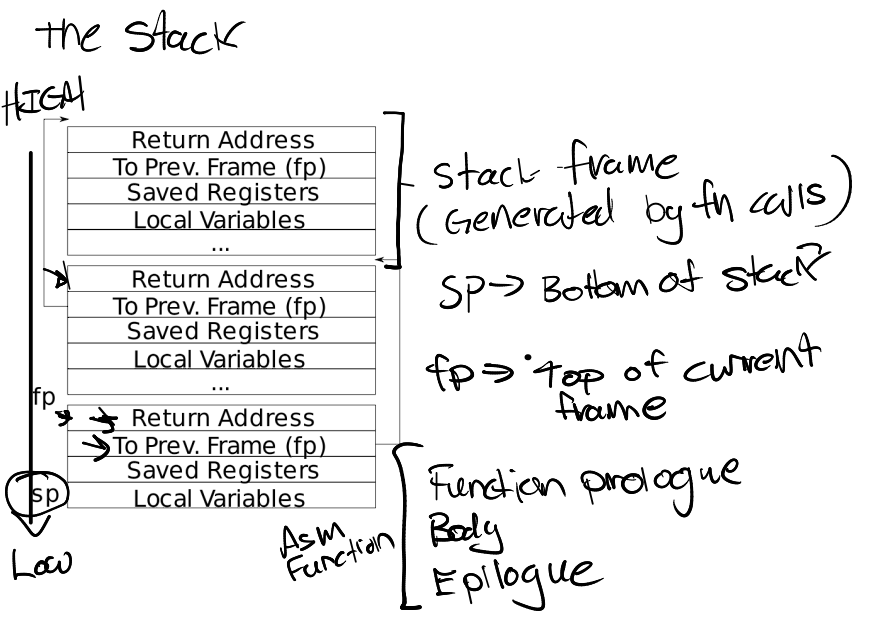 the Stack
HIGH
Return Address
To Prev. Frame (fp)
Saved Registers
Local Variables
...
Return Address
To Prev. Frame (fp)
Saved Registers
Local Variables
...
fp
Return Address
To Prev. Frame (fp)
Saved Registers
sp
Local Variables
Low
Stack frame
(Generated by fn calls)
SP → Bottom of stack
fp ⇒ Top of current
frame
Asm
Function
Function prologue
Body
Epilogue